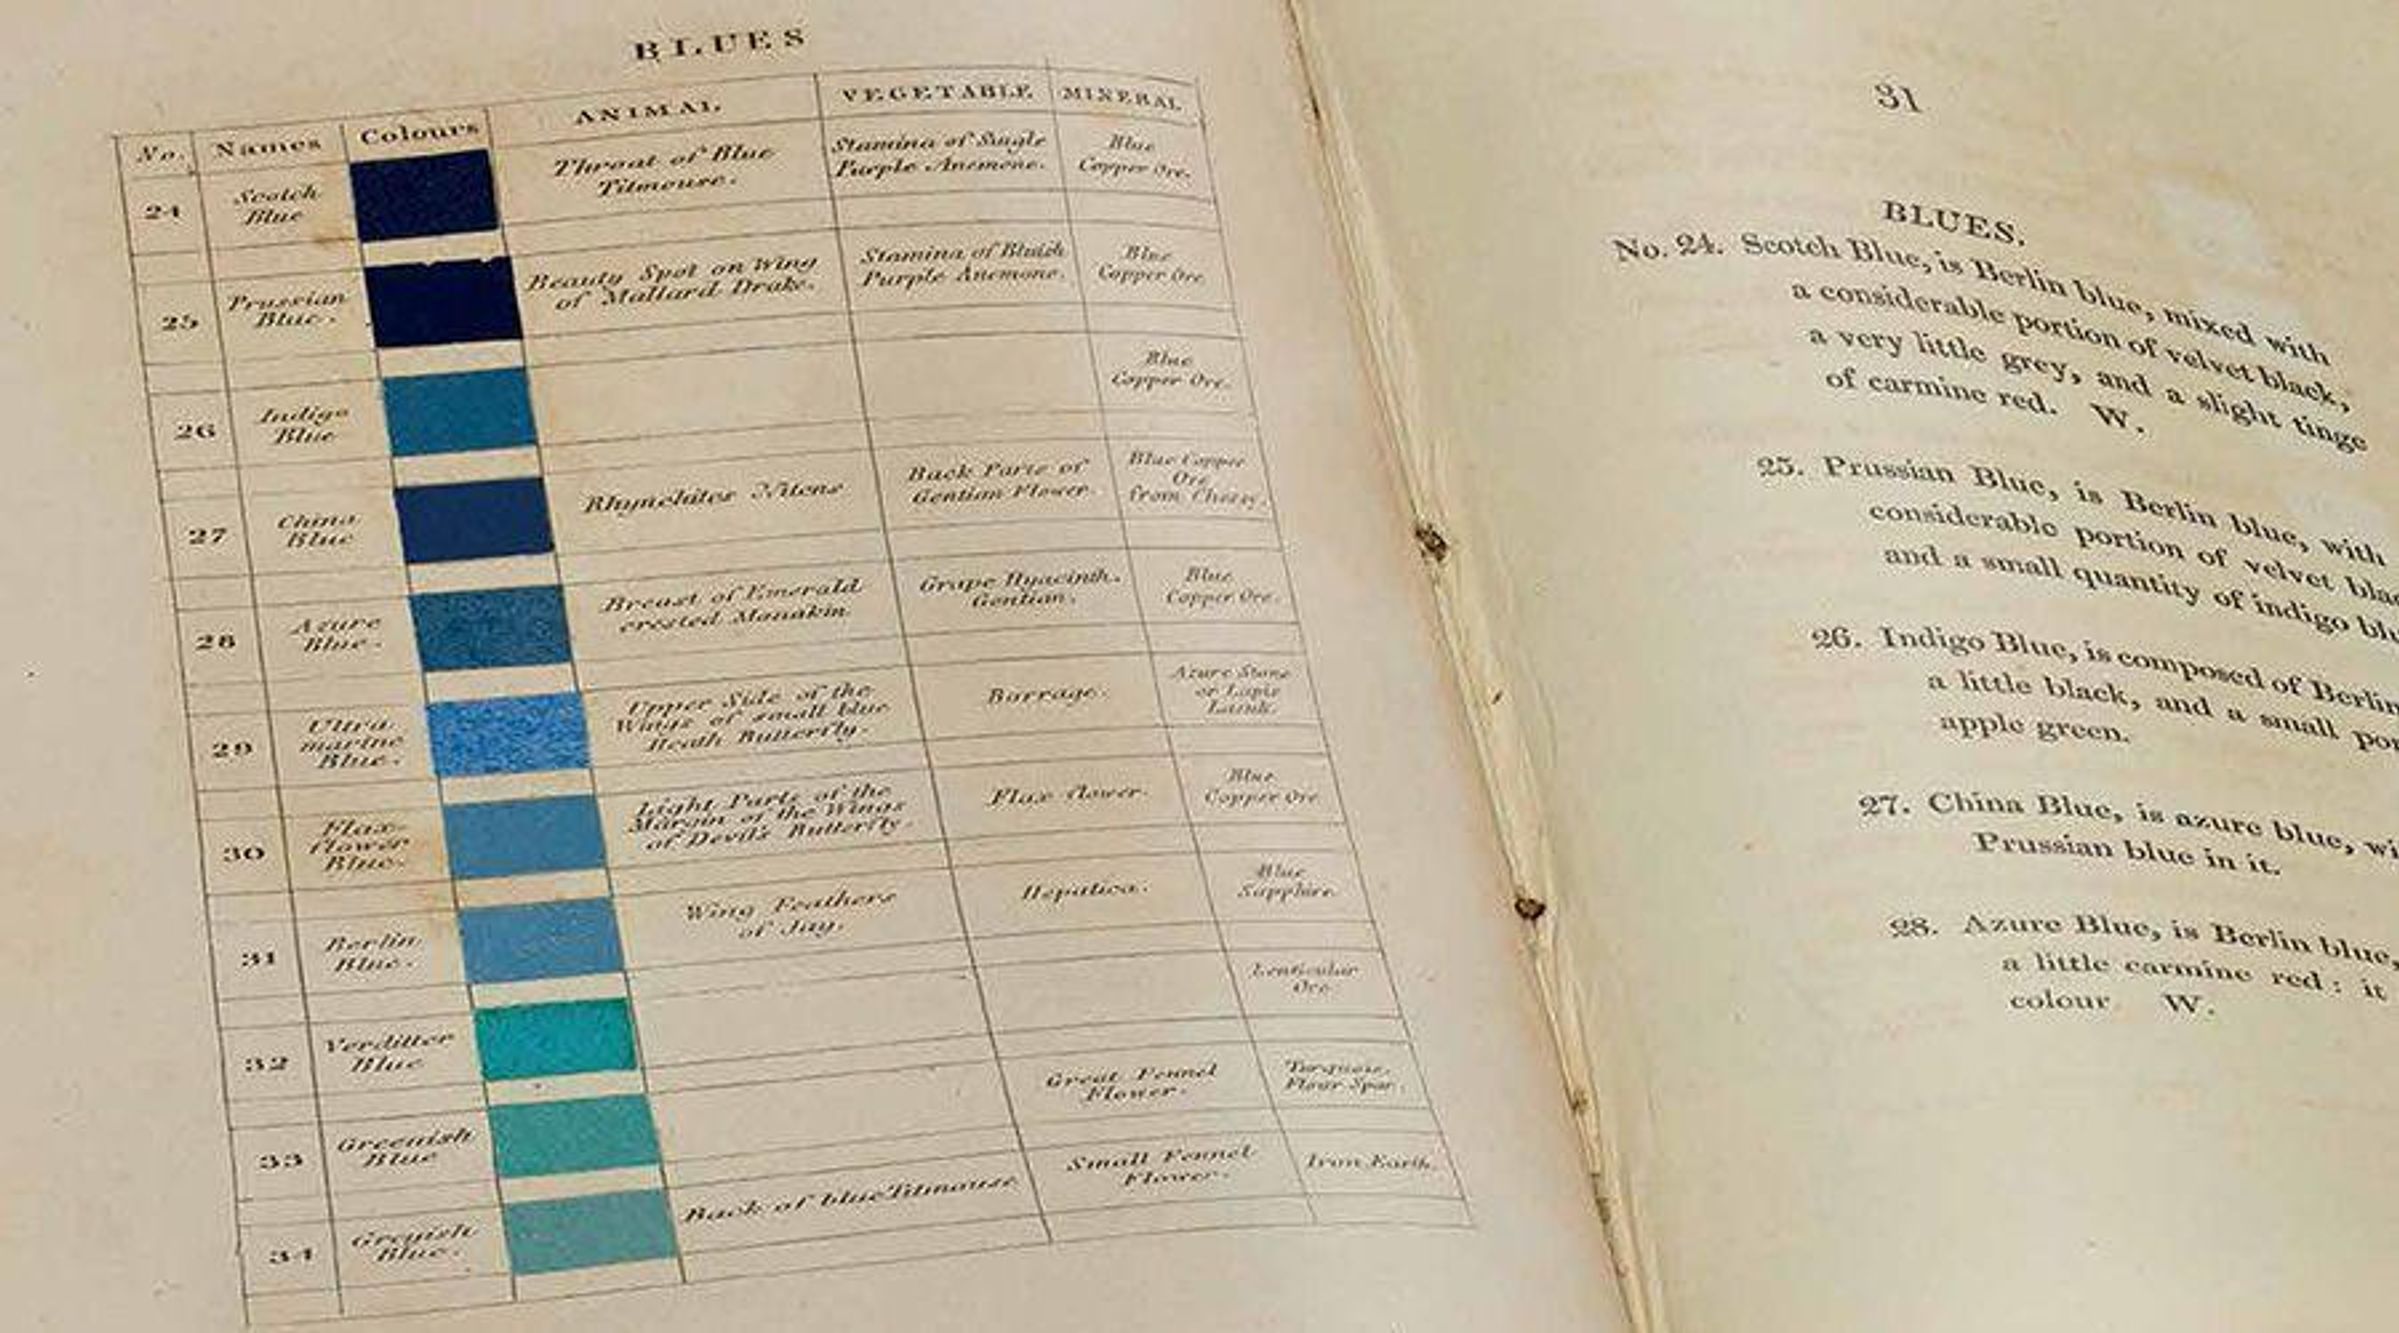 BLUES
No. Names Colours ANIMAL VEGETABLE MINERAL
24
Scotch
Blue
Throat of Blue
Titmouse.
Stamina of Single
Purple Anemone.
Blue
Copper Ore.
25
Prussian
Blue.
Beauty Spot on Wing
of Mallard Drake.
Stamina of Bluish
Purple Anemone.
Blue
Copper Ore
26
Indigo
Blue
Blue
Copper Ore.
27
China
Blue
Rhynchites Nitens
Back Parts of
Gentian Flower.
Blue Copper
Ore
from Chessy.
28
Azure
Blue.
Breast of Emerald
crested Manakin
Grape Hyacinth.
Gentian.
Blue
Copper Ore.
29
Ultra
marine
Blue.
Upper Side of the
Wings of small blue
Heath Butterfly.
Borrage.
Azure Stone
or Lapis
Lazuli.
30
Flax-
flower
Blue.
Light Parts of the
Margin of the Wings
of Devil's Butterfly.
Flax flower.
Blue
Copper Ore
31
Berlin
Blue.
Wing Feathers
of Jay.
Hepatica.
Blue
Sapphire.
32
Verditter
Blue
Lenticular
Ore.
33
Greenish
Blue
Great Fennel
Flower.
Turquoise.
Flour Spar.
34
Greyish
Blue.
Back of blue Titmouse
Small Fennel
Flower.
Iron Earth.
31
BLUES.
No. 24. Scotch Blue, is Berlin blue, mixed with
a considerable portion of velvet black,
a very little grey, and a slight tinge
of carmine red. W.
25. Prussian Blue, is Berlin blue, with
considerable portion of velvet blac
and a small quantity of indigo blu
26. Indigo Blue, is composed of Berlin
a little black, and a small por
apple green.
27. China Blue, is azure blue, wi
Prussian blue in it.
28. Azure Blue, is Berlin blue,
a little carmine red: it
colour W.